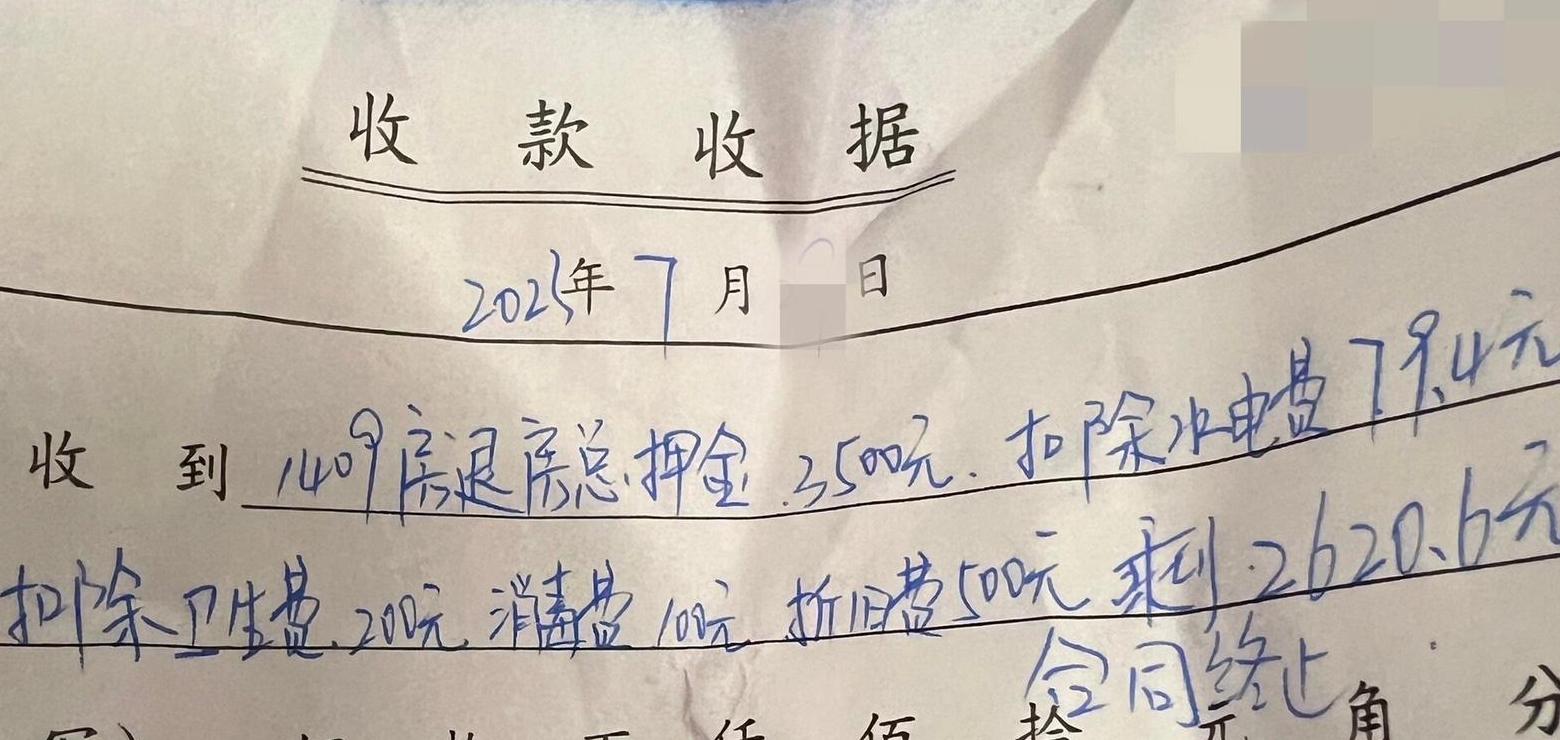 收款收据
2025年7月 日
收到 1409房退房总押金3500元.扣除水电费79.4元
扣除卫生费200元 消毒费100元 折旧费500元 剩2620.6元
合同终止
仟 佰 拾 元 角 分